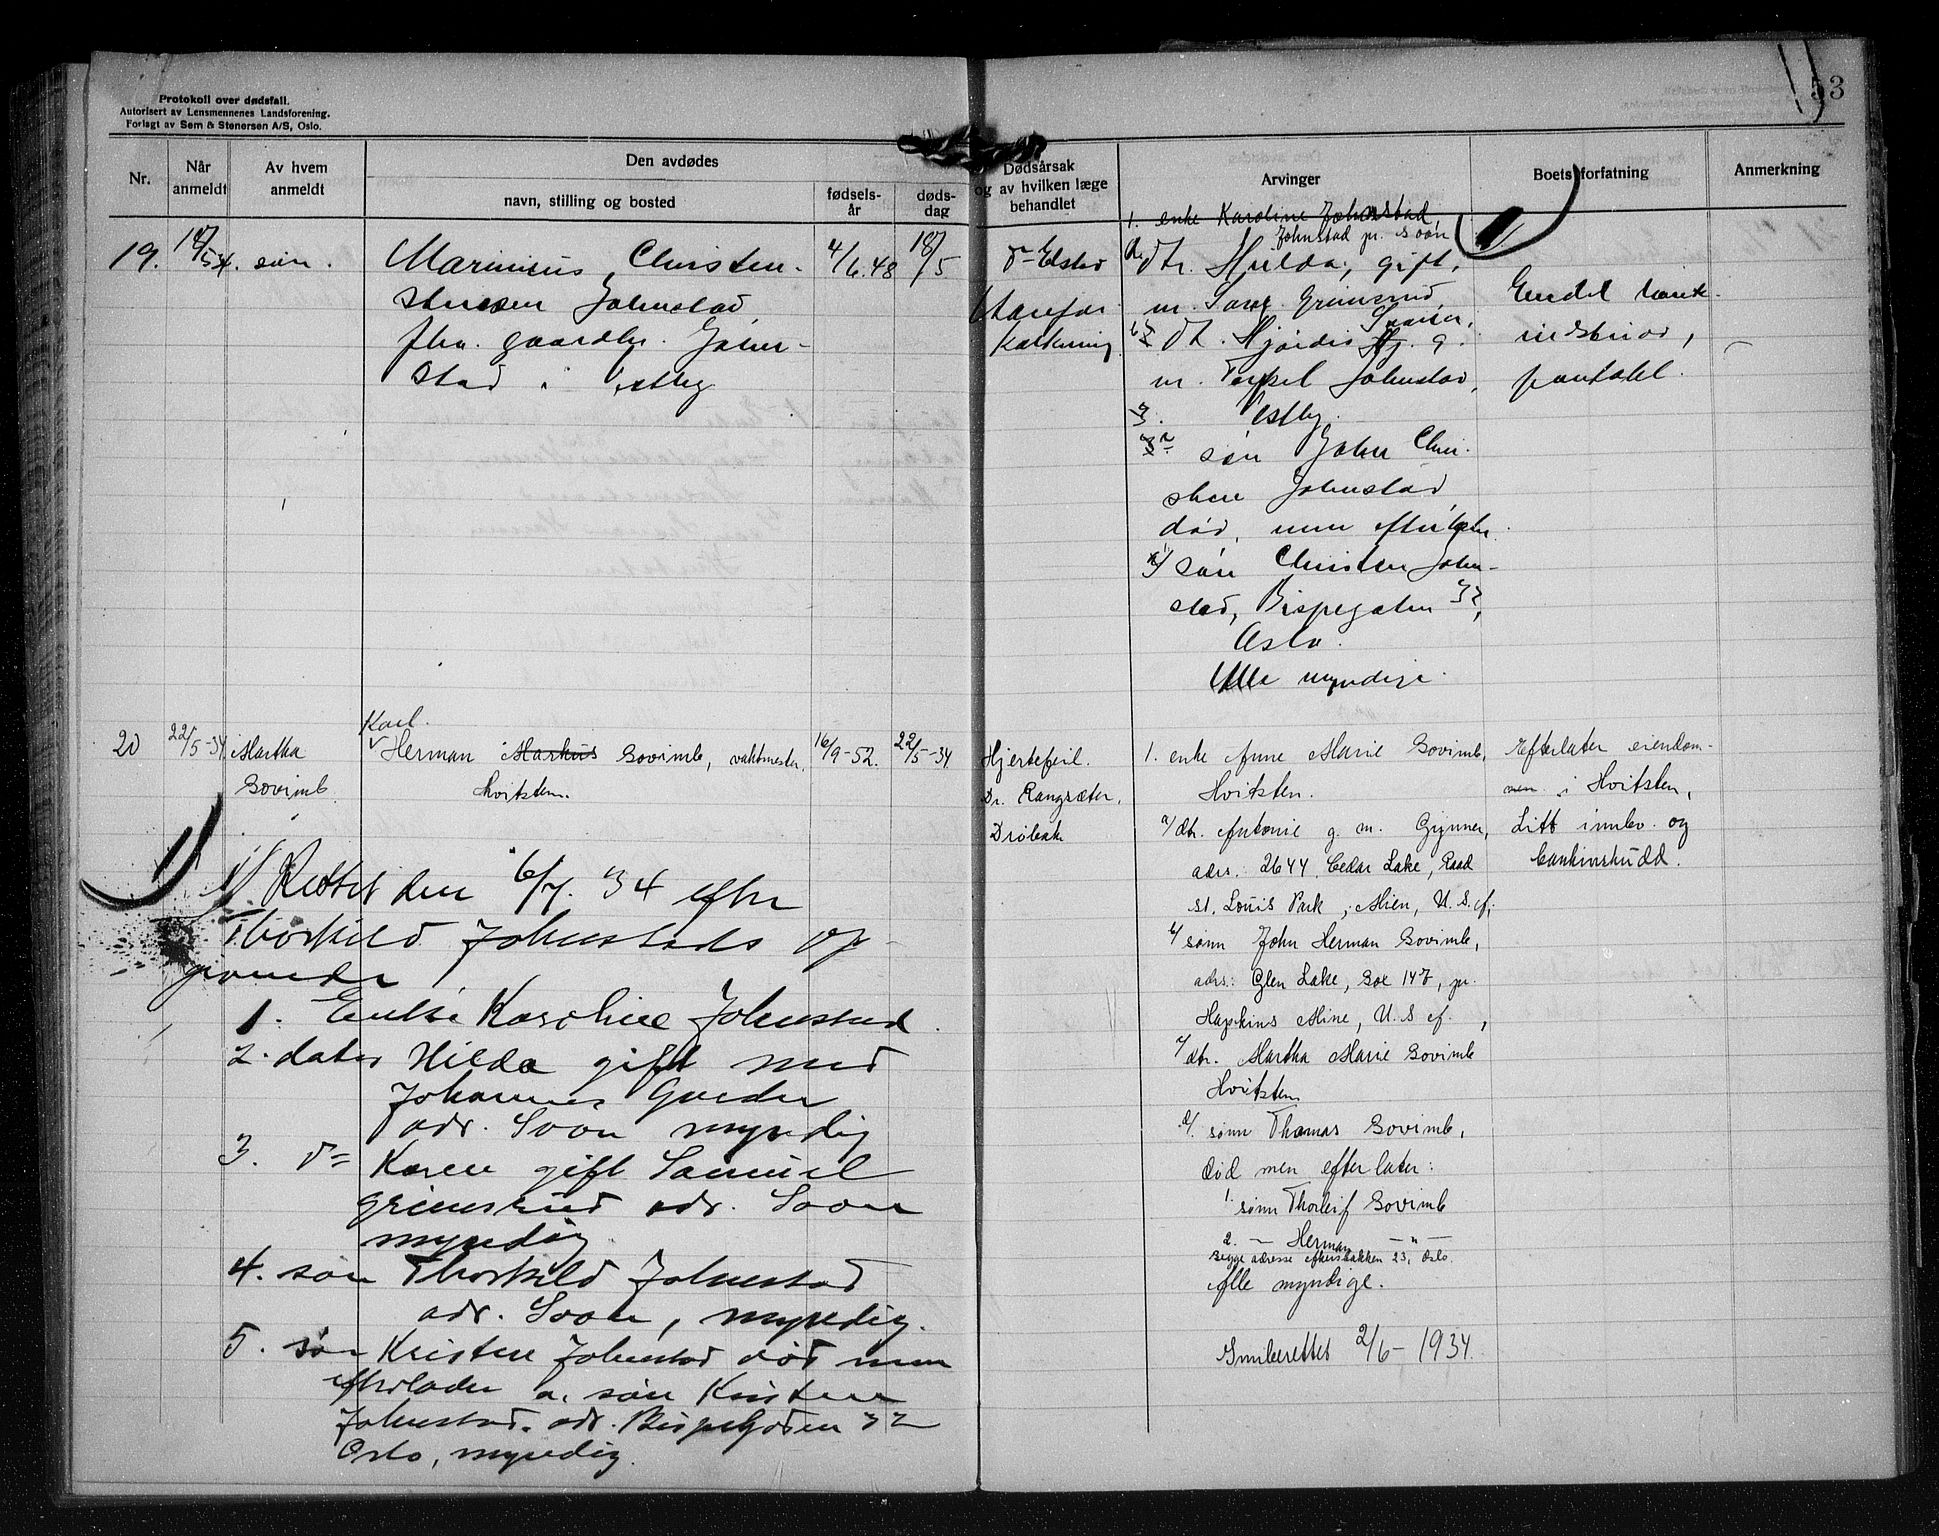 53
Protokoll over dødsfall.
Autorisert av Lensmennenes Landsforening.
Forlagt av Sem & Stenersen A/S, Oslo.
Nr.
Når
anmeldt
Av hvem
anmeldt
Den avdødes
navn, stilling og bosted
fødsels-
år
døds-
dag
Dødsårsak
og av hvilken læge
behandlet
Arvinger
Boets forfatning
Anmerkning
19.
søn.
Marinius Christen-
Johnstad
fhv. gaardbr. John-
stad i Vestby
4/6.48
18/5
dr Elstad
1. enke Karoline Johnstad,
Johnstad pr. Soon
dtr. Hulda, gift
m. Grimsrud,
dt. Hjørdis g.
m. Johnstad,
Vestby.
søn John Chri-
sten Johnstad
død, men efterlater
søn Christen John-
stad, Bispegaten 32,
Oslo.
Alle myndige.
Endel
innskudd,
20
22/5-34
Martha
Bovimb
Karl
Herman Markus Bovimb, vaktmester.
Hvitsten.
16/9-52.
22/5-34
Hjertefeil.
Dr. Rangsæter,
Drøbak
1. enke Anne Marie Bovimb,
Hvitsten.
a/ dtr. Antonie g. m. Gynner,
adrs. 2644 Cedar Lake, Raad
St. Louis Park, Minn, U.S.A.
b/ sønn John Herman Bovimb,
adrs: Glen Lake, Box 147, pr.
Hapkins Mine, U.S.A.,
c/ dtr. Martha Marie Bovimb
Hvitsten
d/. sønn Thomas Bovimb,
død men efterlater:
1. sønn Thorleif Bovimb
2. — Herman — " —
Begge adresse Akersbakken 23, Oslo.
Alle myndige.
Innberettet 2/6-1934.
Efterlater eiendom-
men i Hvitsten,
Litt innbo og
bankinnskudd.
1) Rettet den 6/7. 34 efter
Thorkild Johnstads op-
givende
1. Enke Karoline Johnstad.
2. dater Hilda gift med
Johannes
adr. Soon myndig
3. d= Karen gift Samuel
Grimsrud adr. Soon
myndig
4. søn Thorkild Johnstad
adr. Soon, myndig.
5. søn Kristen Johnstad død men
efterlader a. søn Kristen
Johnstad. adr. Bispegaden 32
Oslo, myndig.